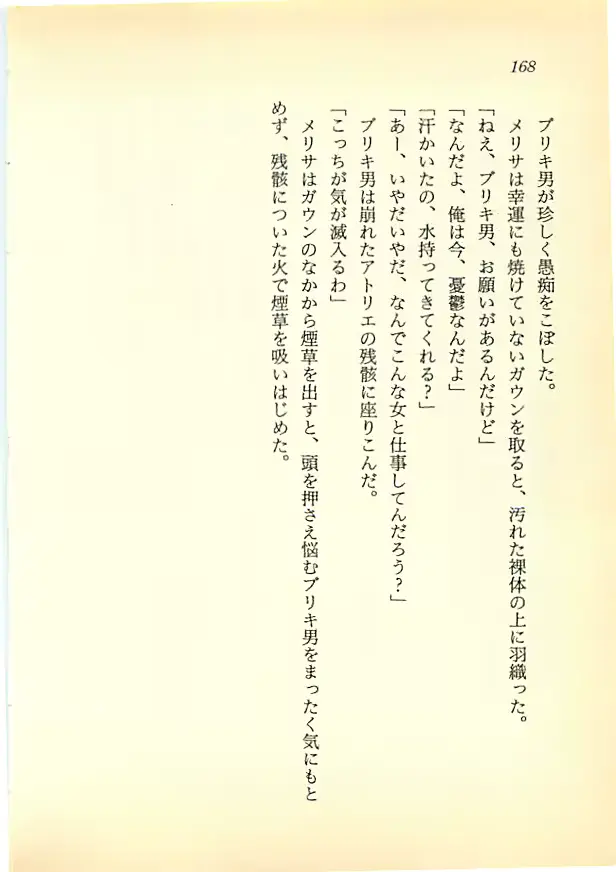 168
ブリキ男が珍しく愚痴をこぼした。
メリサは幸運にも焼けていないガウンを取ると、汚れた裸体の上に羽織った。
「ねえ、ブリキ男、お願いがあるんだけど」
「なんだよ、俺は今、憂鬱なんだよ」
「汗かいたの、水持ってきてくれる？」
「あー、いやだいやだ、なんでこんな女と仕事してんだろう？」
ブリキ男は崩れたアトリエの残骸に座りこんだ。
「こっちが気が滅入るわ」
メリサはガウンのなかから煙草を出すと、頭を押さえ悩むブリキ男をまったく気にもと
めず、残骸についた火で煙草を吸いはじめた。